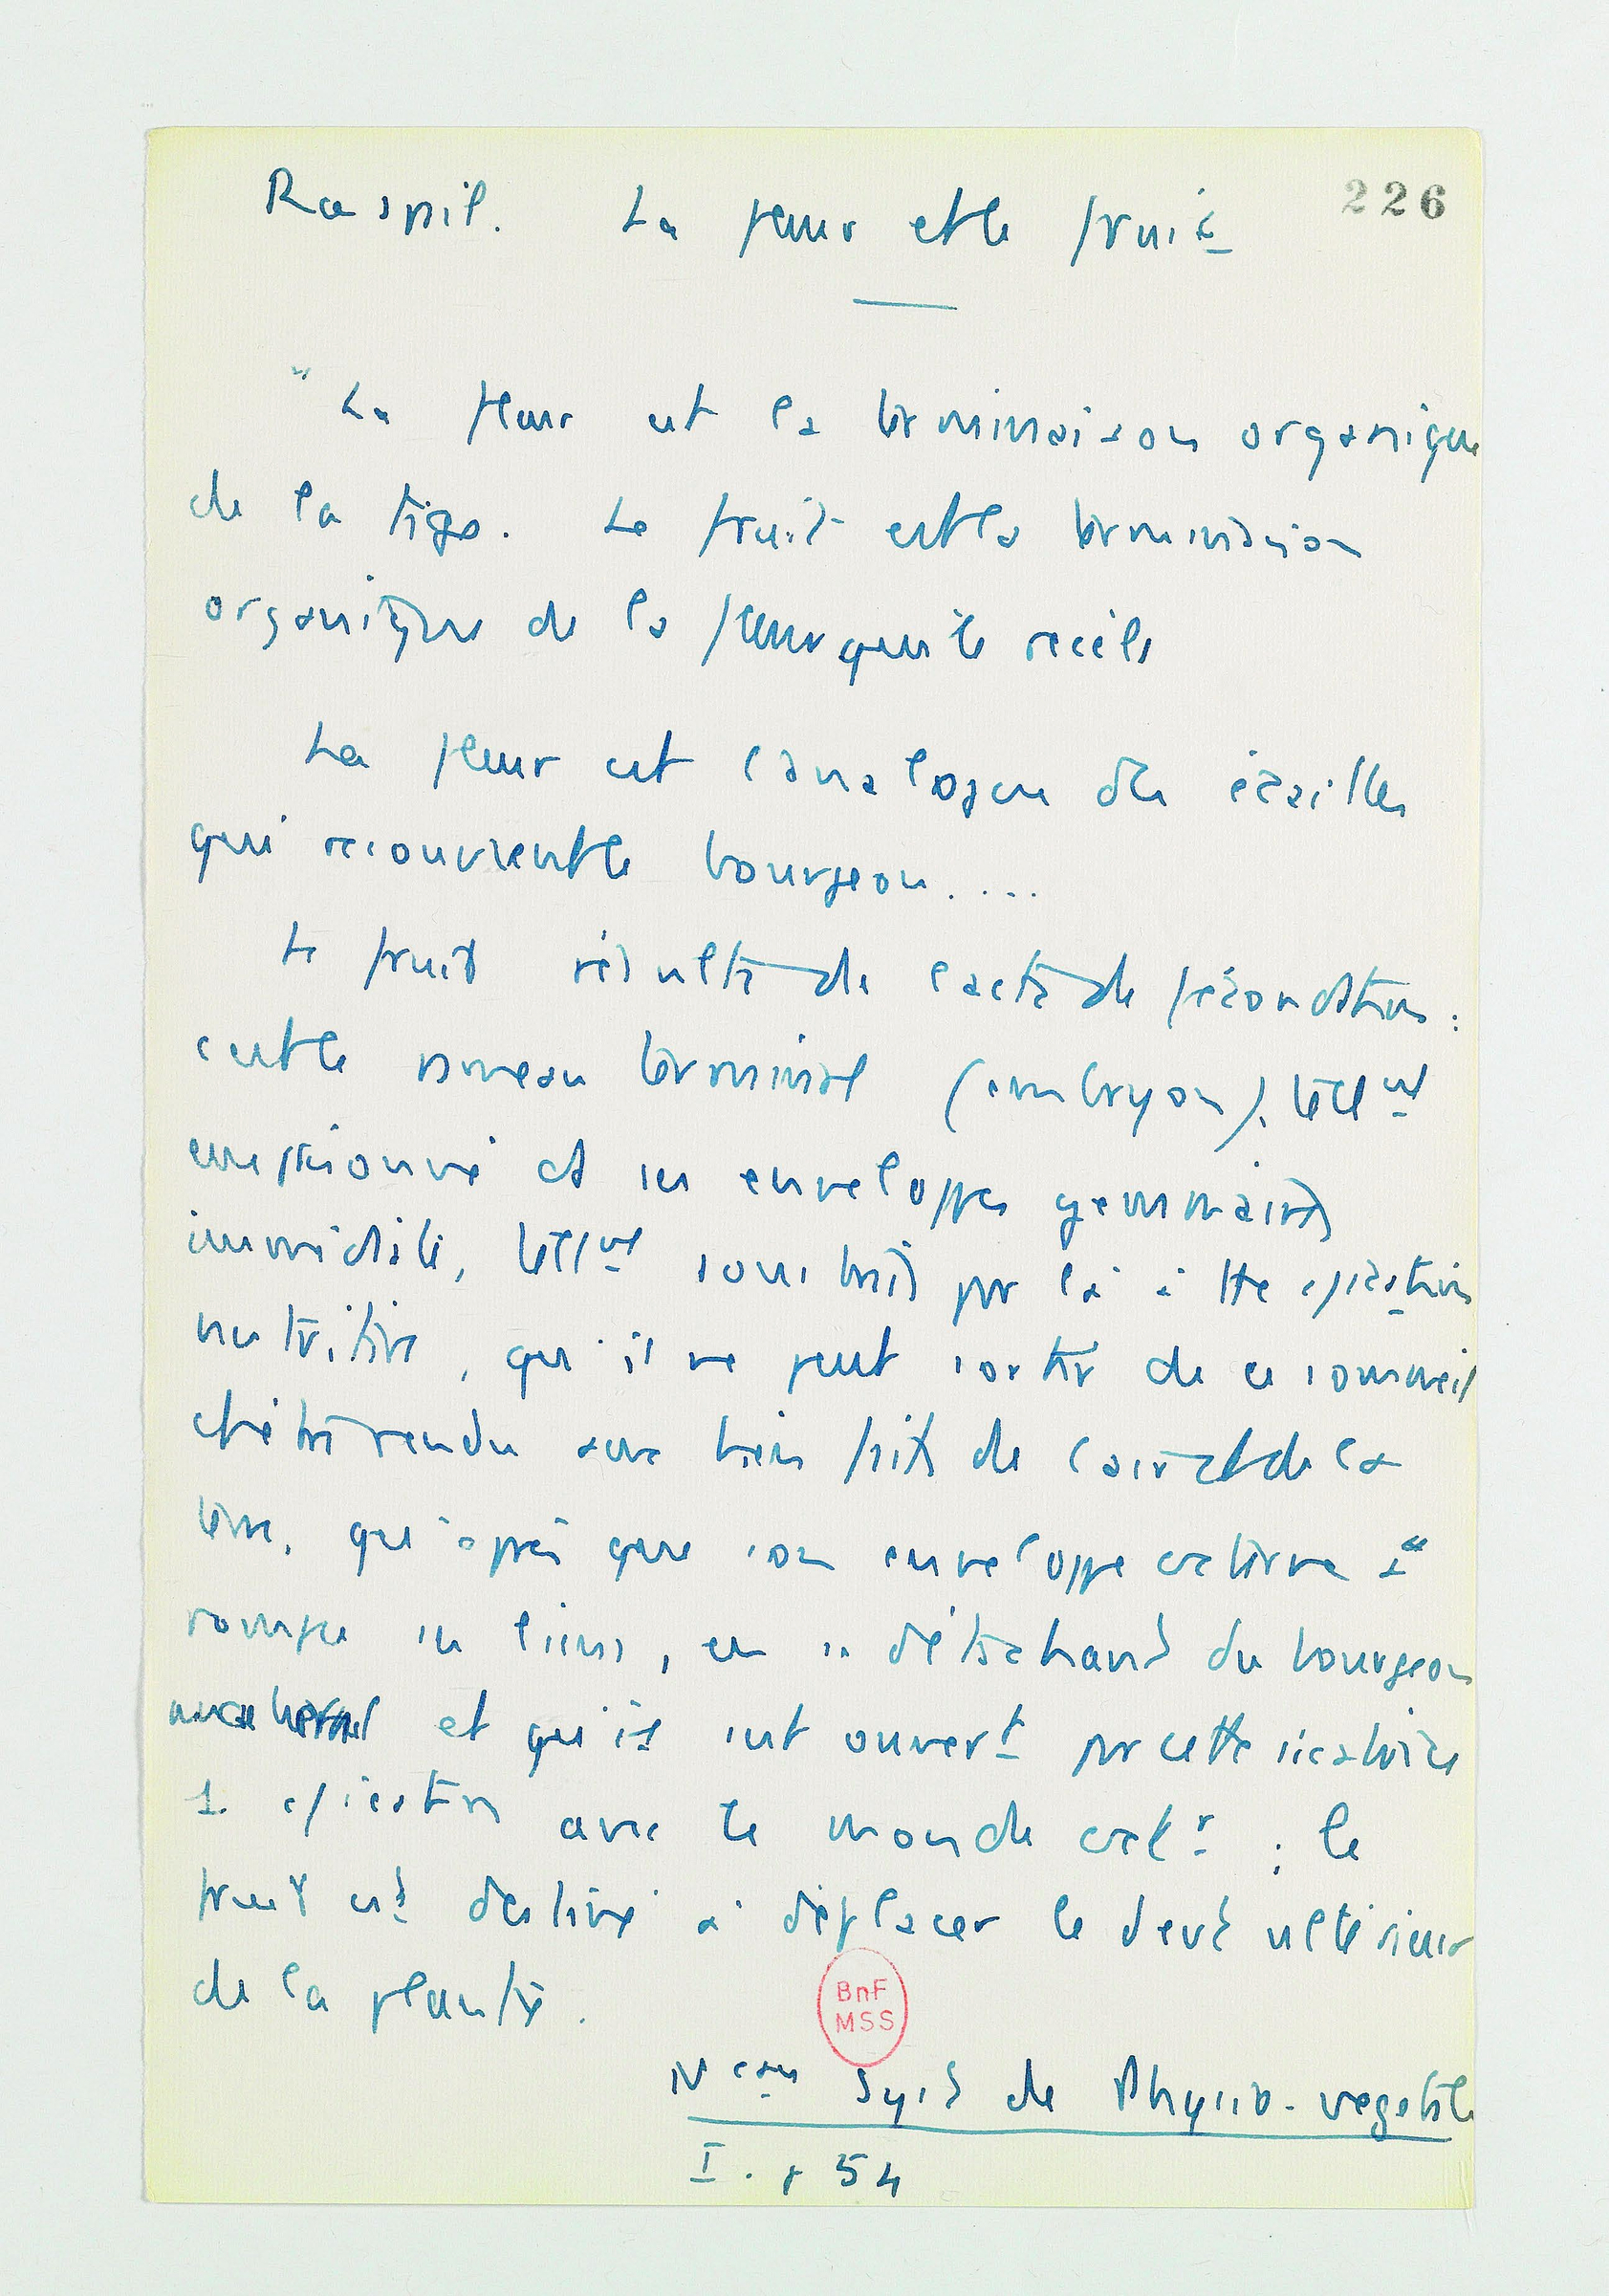 Raspail. La fleur et le fruit
226
" La fleur est la terminaison organique
de la tige. Le fruit est la terminaison
organique de la fleur qui le recèle
La fleur est l'analogue des écailles
qui recouvrent le bourgeon....
Le fruit résulte de l'acte de fécondation :
c'est le rameau terminal (embryon), tellᵗ
emprisonné ds ses enveloppes gemmaires
immédiates, tellᵗ soumis par là à
nutritive, qu'il ne peut sortir de ce sommeil
et être rendu aux bienfaits de l'air et de la
terre, qu'après que son enveloppe externe a
rompu ses liens, en se détachant du bourgeon
maternel et qu'il s'est ouvert par cette cicatrice
1. avec le monde extʳ ; le
fruit est destiné à déplacer le devt ultérieur
de la plante.
BnF
MSS
Nveau Syst de Physio. vegetale
I. p 54